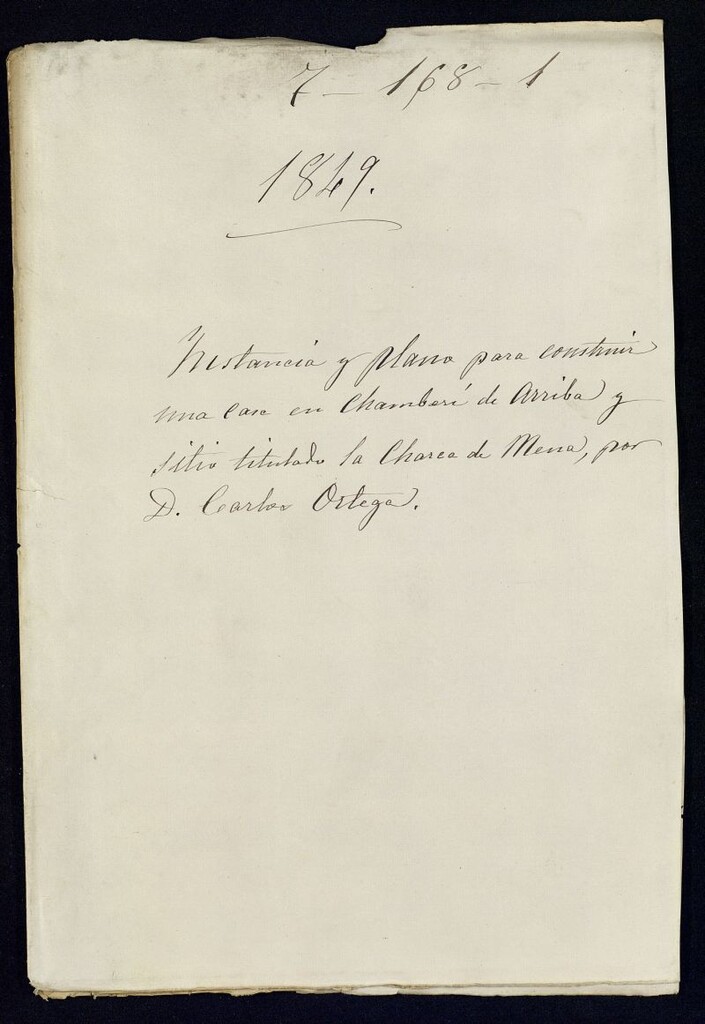 7 - 168 - 1
1849.
Instancia y plano para construir
una casa en Chamberí de Arriba y
sitio titulado la Charca de Mena, por
D. Carlos Ortega.